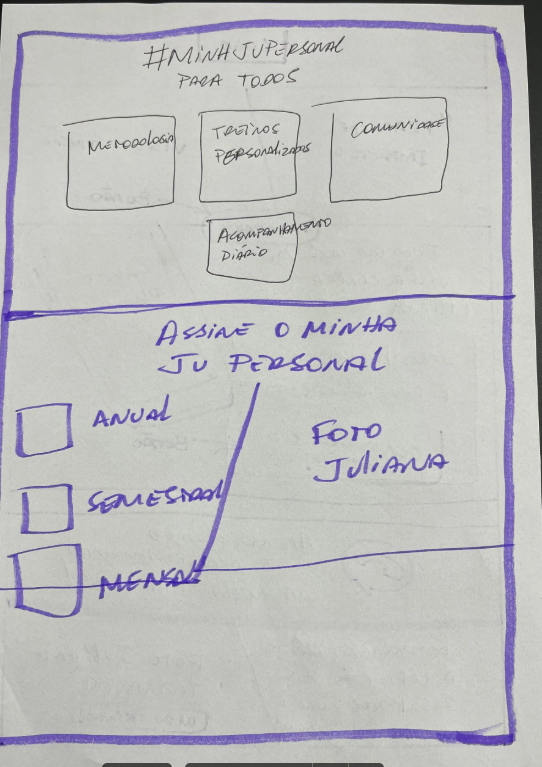 #MINHJUPERSONAL
PARA TODOS
METODOLOGIA
TREINOS
PERSONALIZADOS
COMUNIDADE
ACOMPANHAMENTO
DIÁRIO
ASSINE O MINHA
JU PERSONAL
ANUAL
SEMESTRAL
MENSAL
FOTO
JULIANA